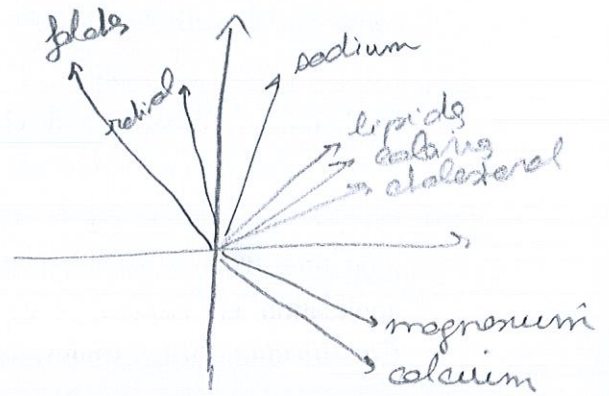 folates
retinol
sodium
lipids
calories
cholesterol
magnesium
calcium